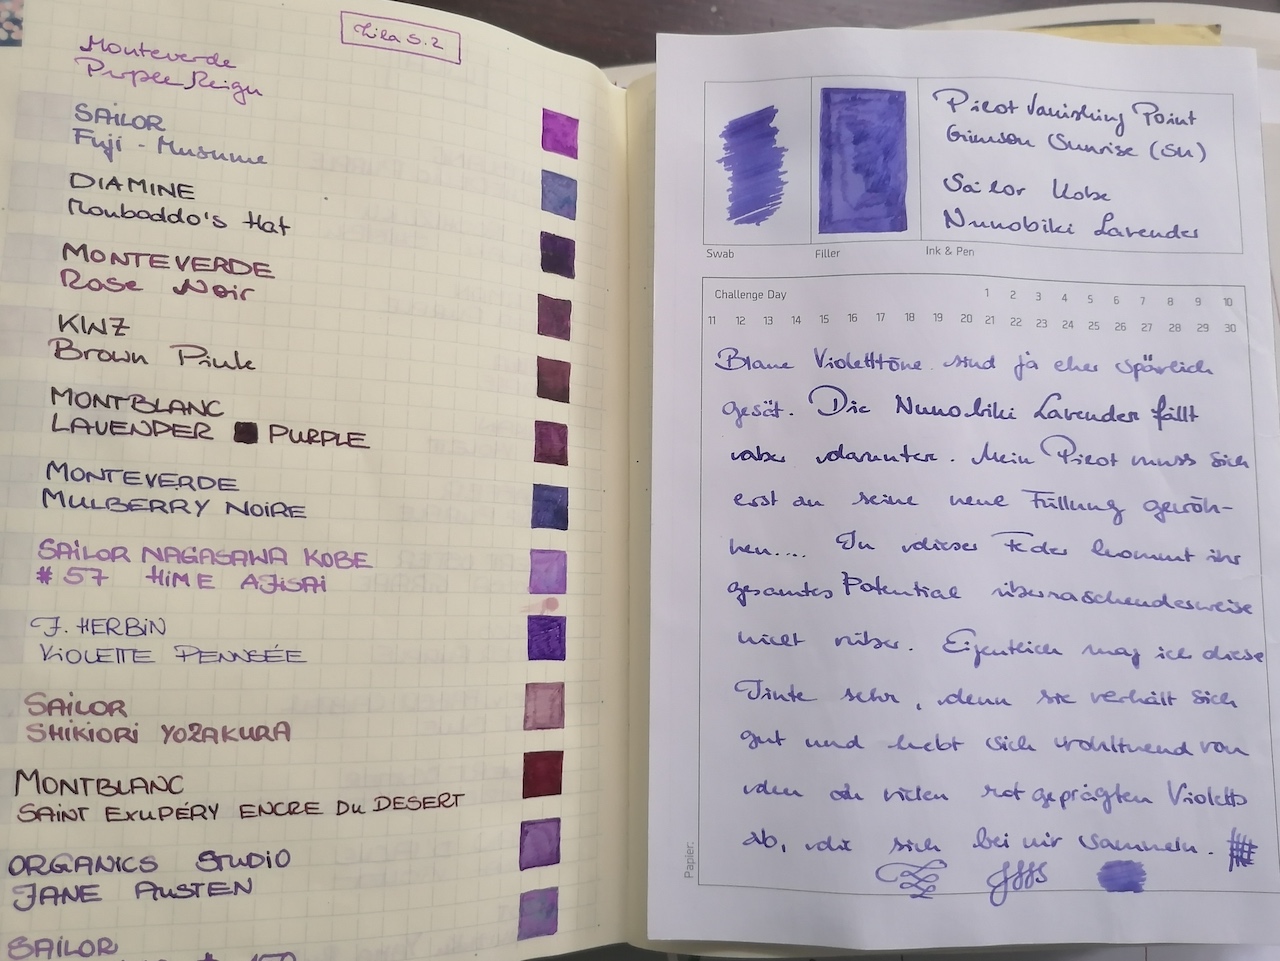 Lila S. 2
Monteverde
Purple Reign
SAILOR
Fuji - Musume
DIAMINE
Monboddo's Hat
MONTEVERDE
Rose Noir
KWZ
Brown Pink
MONTBLANC
LAVENDER PURPLE
MONTEVERDE
MULBERRY NOIRE
SAILOR NAGASAWA KOBE
# 57 HIME AJISAI
J. HERBIN
VIOLETTE PENNSÉE
SAILOR
SHIKIORI YOZAKURA
MONTBLANC
SAINT EXUPÉRY ENCRE DU DESERT
ORGANICS STUDIO
JANE AUSTEN
SAILOR
Pilot Vanishing Point
Crimson Sunrise (SU)
Sailor Kobe
Nunobiki Lavender
Swab Filler Ink & Pen
Challenge Day 1 2 3 4 5 6 7 8 9 10
11 12 13 14 15 16 17 18 19 20 21 22 23 24 25 26 27 28 29 30
Blaue Violetttöne sind ja eher spärlich
gesät. Die Nunobiki Lavender fällt
aber darunter. Mein Pilot muss sich
erst an seine neue Füllung gewöh-
nen.... In dieser Feder kommt ihr
gesamtes Potential überraschenderweise
nicht rüber. Eigentlich mag ich diese
Tinte sehr, denn sie verhält sich
gut und hebt sich wohltuend von
den oh vielen rot geprägten Violetts
ab, die sich bei mir sammeln.
Papier: